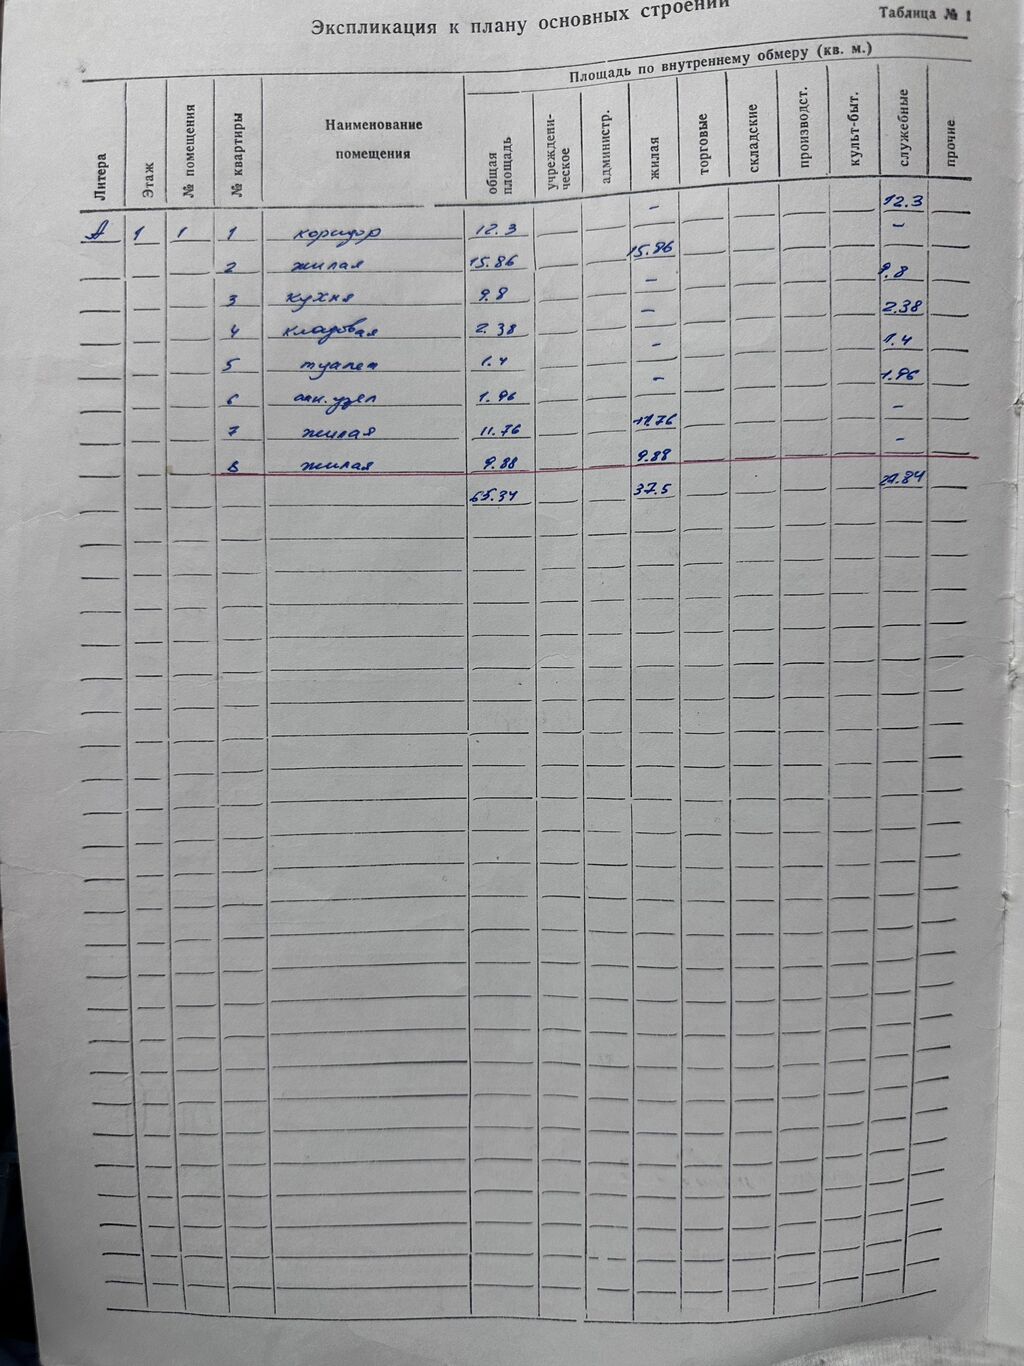 Экспликация к плану основных строений
Таблица № 1
Литера Этаж № помещения № квартиры Наименование помещения Площадь по внутреннему обмеру (кв. м.)
общая площадь учреждени-ческое администр. жилая торговые складские производст. культ-быт. служебные прочие
А 1 1 1 коридор 12.3 - 12.3
2 жилая 15.86 15.86 -
3 кухня 9.8 - 9.8
4 кладовая 2.38 - 2.38
5 туалет 1.4 - 1.4
6 сан.узел 1.96 - 1.96
7 жилая 11.76 11.76 -
8 жилая 9.88 9.88 -
65.34 37.5 27.84